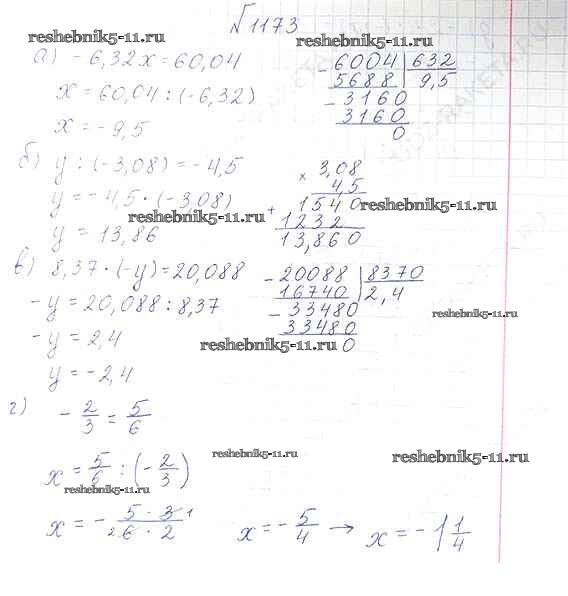 √1173
reshebnik5-11.ru
reshebnik5-11.ru
а) -6,32x = 60,04
x = 60,04 : (-6,32)
x = -9,5
- 6004 | 632
5688 9,5
- 3160
3160
0
б) y : (-3,08) = -4,5
y = -4,5 · (-3,08)
y = 13,86
reshebnik5-11.ru
× 3,08
4,5
+ 1540
1232
13,860
reshebnik5-11.ru
в) 8,37 · (-y) = 20,088
-y = 20,088 : 8,37
-y = 2,4
y = -2,4
- 20088 | 8370
16740 2,4
- 33480
33480
0
reshebnik5-11.ru
reshebnik5-11.ru
г) -2/3 = 5/6
x = 5/6 : (-2/3)
reshebnik5-11.ru
reshebnik5-11.ru
reshebnik5-11.ru
x = - 5 · 3 1 / 2 6 · 2 x = -5/4 → x = -1 1/4